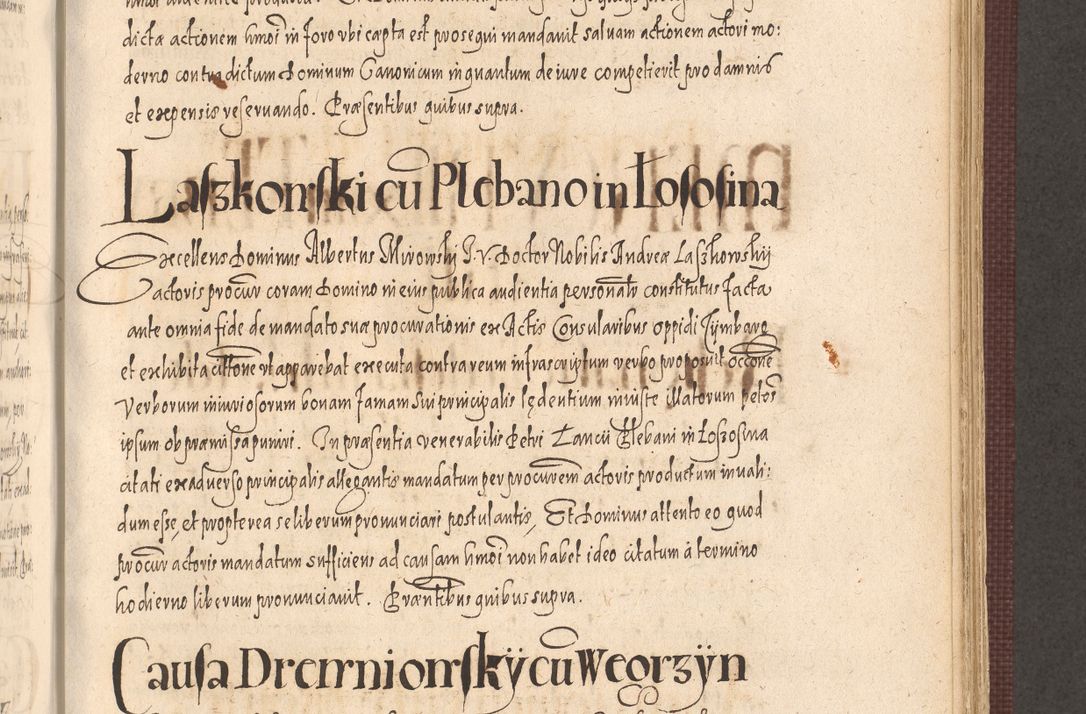 dicta actionem hmoi in foro vbi capta est prosequi mandauit saluam actionem actori mo:
derno contra dictum Dominum Canonicum in quantum de iure competierit pro damnis
et expensis reseruando. Præsentibus quibus supra.
Laszkowski cū Plebano in Łososina
Excellens Dominus Albertus Mirowski I. V. Doctor Nobilis Andreæ Laszkowskij
actoris procūr coram Domino in eius publica audientia personalr constitutus facta
ante omnia fide de mandato suæ procurationis ex Actis Consularibus oppidi Tymbarg
et exhibita cittone vt apparebat executa contra reum infrascriptum verbo proposuit occōne
Verborum iniuriosorum bonam famam sui principalis lędentium iniuste illatorum petēs
ipsum ob præmissa puniri. In præsentia venerabilis Petri Łancii Plebani in Łoszosina
citati ex aduerso principalis allegantis mandatum per procurēm actoris productum inuali:
dum esse, et propterea se liberum pronunciari postulantis, Et Dominus attento eo quod
procūr actoris mandatum sufficiens ad causam hmoi non habet ideo citatum à termino
hodierno liberum pronunciauit. Præntibus quibus supra.
Causa Drewniowskÿ cū Weorzÿn